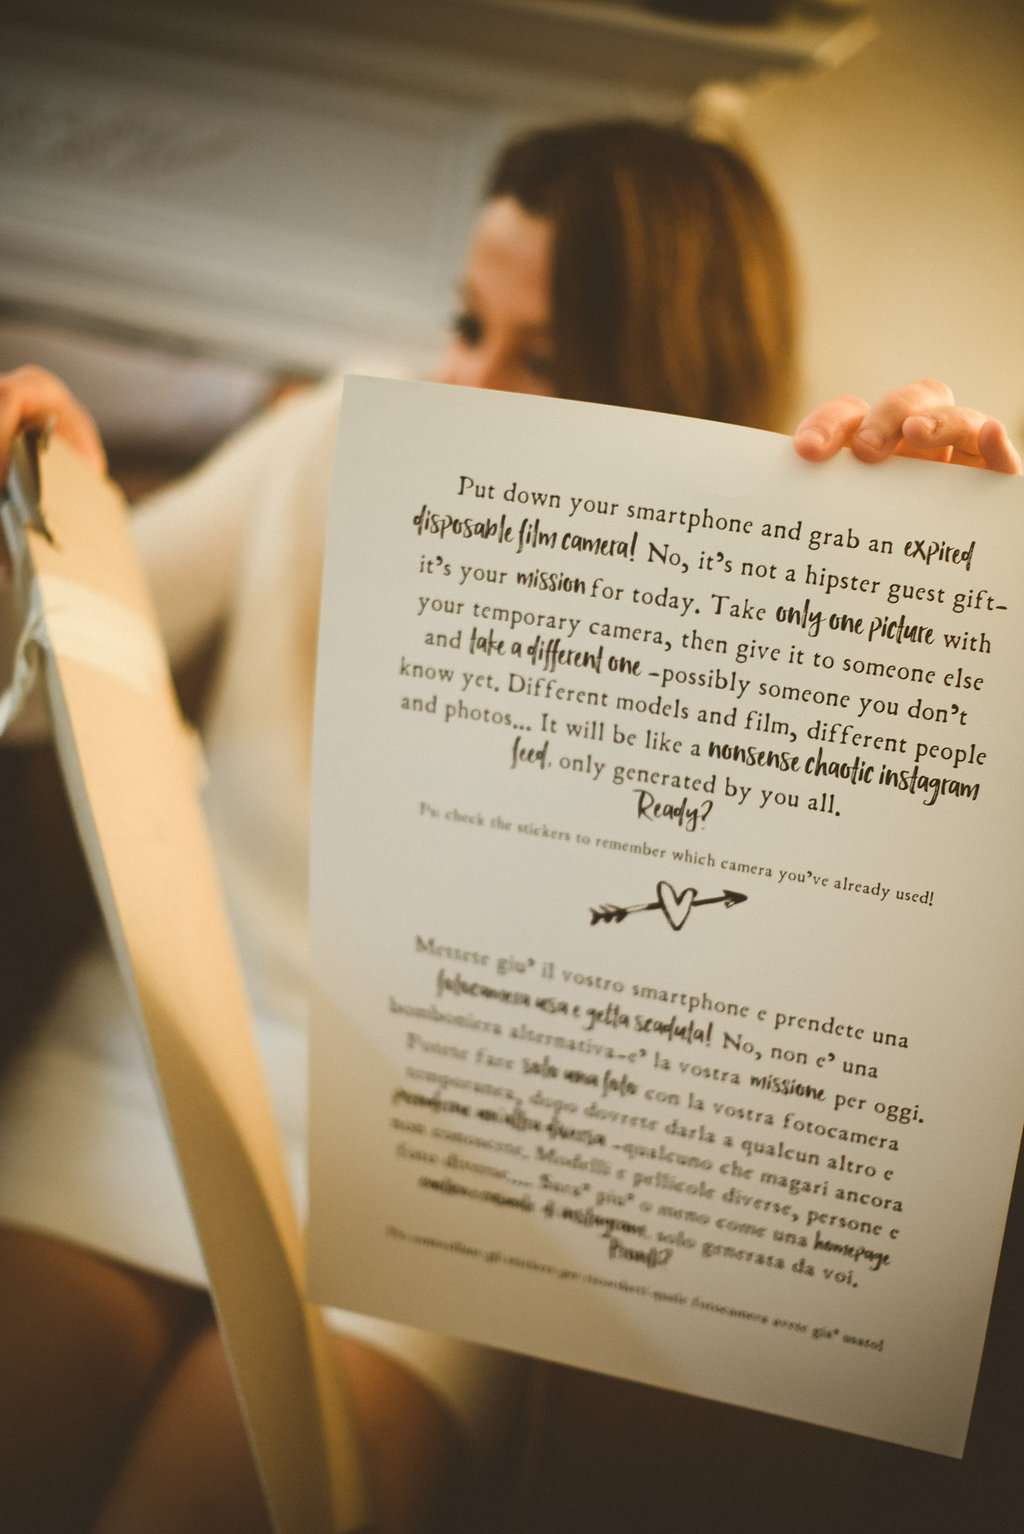 Put down your smartphone and grab an expired
disposable film camera! No, it's not a hipster guest gift-
it's your mission for today. Take only one picture with
your temporary camera, then give it to someone else
and take a different one -possibly someone you don't
know yet. Different models and film, different people
and photos... It will be like a nonsense chaotic instagram
feed, only generated by you all.
Ready?
Ps: check the stickers to remember which camera you've already used!
Messese giu' il vostro smartphone e prendete una
fotocamera usa e getta scaduta! No, non e' una
bomboniera alternativa-e' la vostra missione per oggi.
Potete fare solo una foto con la vostra fotocamera
temporanea, dopo dovrete darla a qualcun altro e
prenderne un'altra diversa -qualcuno che magari ancora
non conoscete. Modelli e pellicole diverse, persone e
foto diverse.... Sara' piu' o meno come una homepage
di instagram, solo generata da voi.
Pronti?
gli stickers per fotocamera avete gia' usato!